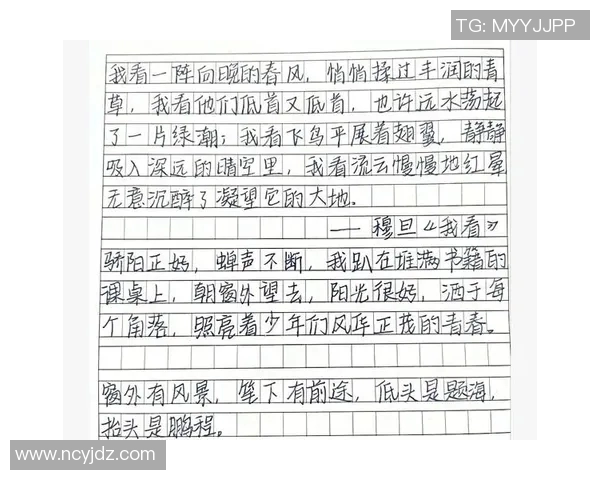 TG: MYYJJPP
我看一阵向晚的春风，悄悄揉过丰润的青
草，我看他们低首又低首，也许远水荡起
了一片绿潮；我看飞鸟平展着翅翼，静静
吸入深远的晴空里，我看流云慢慢地红晕
无意沉醉了凝望它的大地。
——穆旦《我看》
骄阳正好，蝉声不断，我趴在堆满书籍的
课桌上，朝窗外望去，阳光很好，洒于每
个角落，照亮着少年们风华正茂的青春。
窗外有风景，笔下有前途，低头是题海，
抬头是鹏程。
www.ncyjdz.com